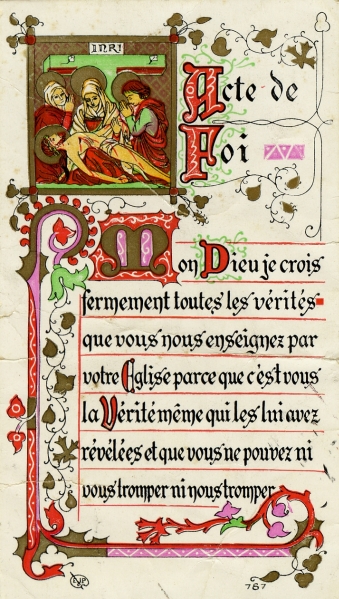 INRI
Acte de
Foi
Mon Dieu je crois
fermement toutes les vérités
que vous nous enseignez par
votre Eglise parce que c'est vous
la Vérité même qui les lui avez
révélées et que vous ne pouvez ni
vous tromper ni nous tromper
787